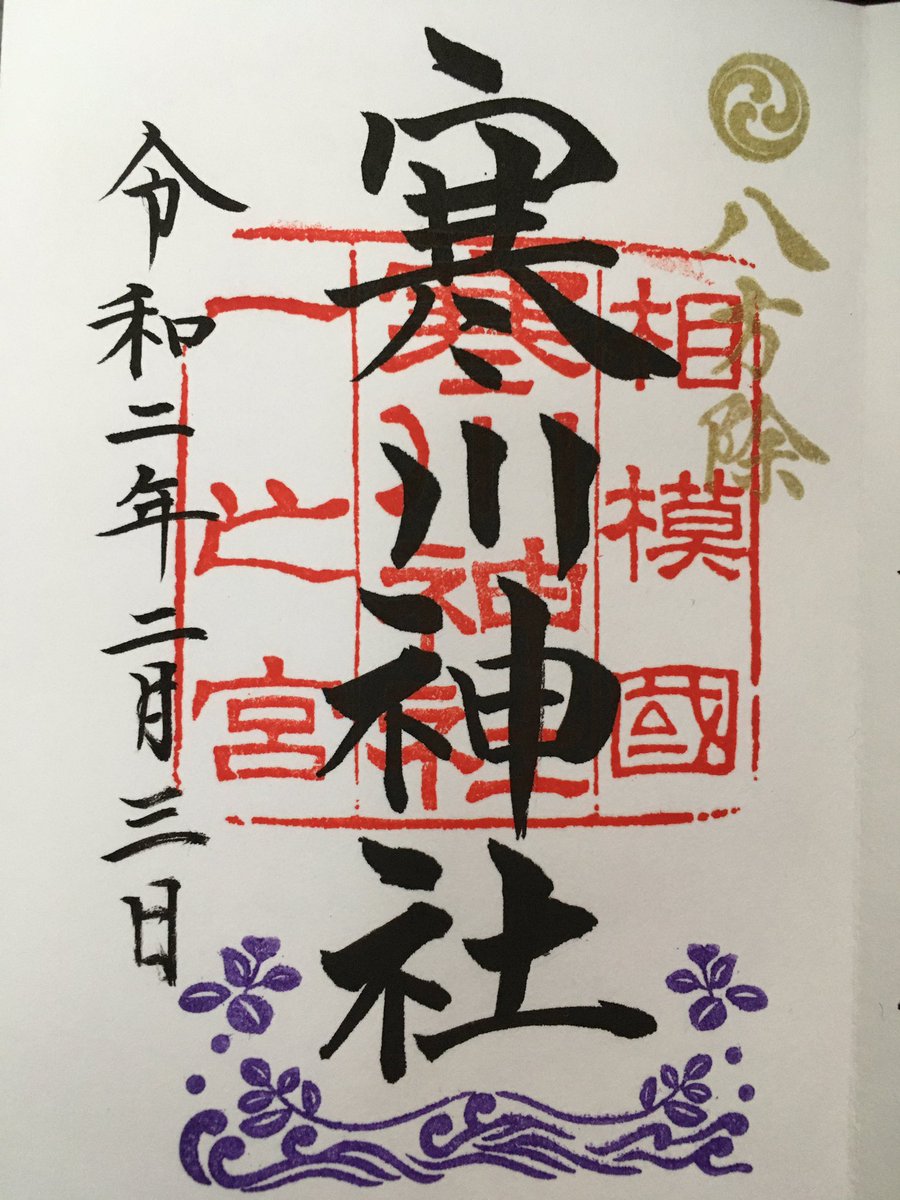 八方除
相模國
寒川神社
寒川神社
一之宮
令和二年二月三日